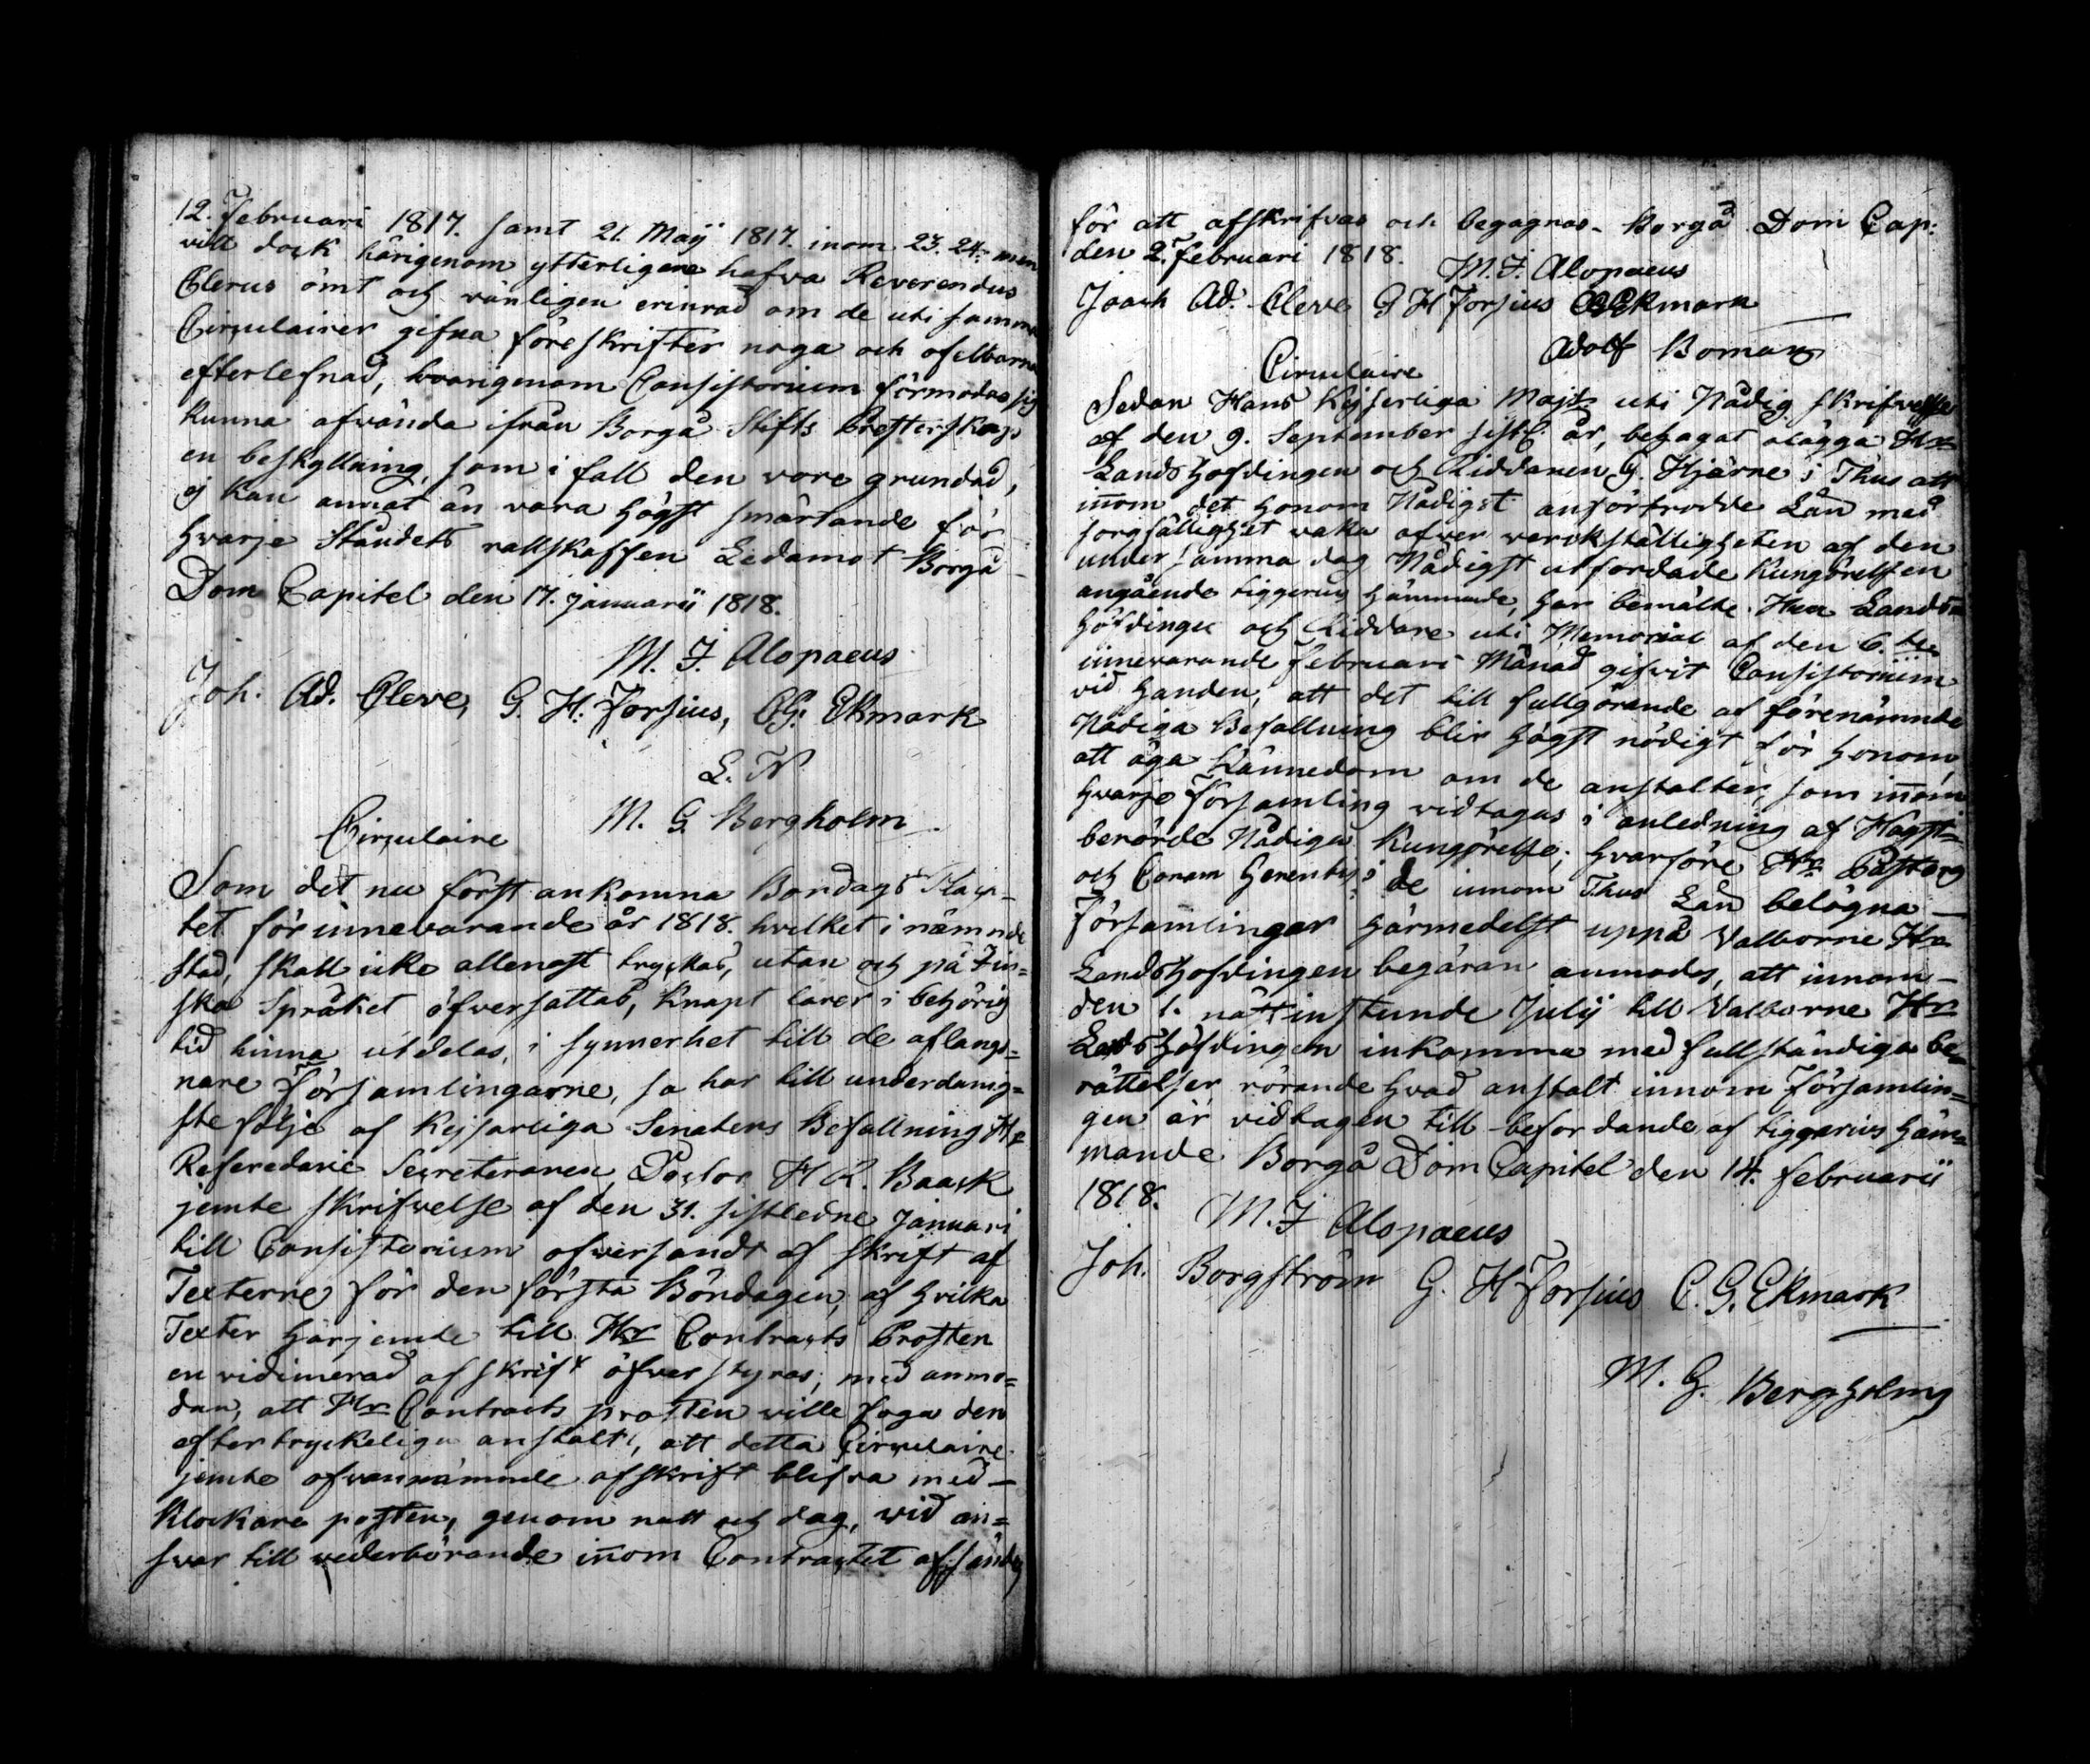 12. Februari 1817. samt 21. Maij 1817. inom 23. 24. men
vill dock härigenom ytterligare hafva Reverendus
Clerus ömt och vänligen erinrad om de uti samma
Circulairer gifna föreskrifter noga och ofelbarna
efterlefnad, hvarigenom Consistorium förmodar sig
kunna afvända ifrån Borgå Stifts Presterskap
en beskyllning, som i fall den vore grundad,
ej kan annat än vara högst smärtande för
hvarje Ståndets rättskaffen Ledamot Borgå
Dom Capitel den 17. Januarii 1818.
M. J. Alopaeus
Joh. Ad. Cleve, G. H. Forsius, CG. Ekmark
L. N
M. G. Bergholm
Circulaire
Som det nu först ankomna Böndags Placa-
tet för innevarande år 1818. hvilket i nämnde
stad, skall icke allenast tryckas, utan och på Fin=
ska Språket öfversattas, knapt lärer i behörig
tid hinna utdelas, i synnerhet till de aflängs=
nare Församlingarne, så har till underdånig=
ste följe af Kejserliga Senatens Befallning Hr
Referendarie Secreteraren, Doctor H R. Baack
jemte skrifvelse af den 31. sistledne Januari
till Consistorium öfversändt afskrift af
Texterne för den första Böndagen, af hvilka
Texter härjemte till Hr Contracts Prosten
en vidimerad afskrift öfverstyras; med anmo=
dan, att Hr Contracts prosten ville foga den
eftertryckeliga anstalt, att detta Circulaire
jemte ofvannämnde afskrift blifva med
Klockare posten, genom natt och dag, vid an=
svar till vederbörande inom Contractet afsände
för att afskrifvas och begagnas. Borgå Dom Cap:
den 2. Februari 1818.
M. J. Alopaeus
Joach Ad. Cleve G H Forsius CGEkmark
Adolf Boman
Circulaire
Sedan Hans Kejserliga Majt uti Nådig skrifvelse
af den 9. September sistl. år, behagat ålägga Hr
Landshöfdingen och Riddaren G. Hjärne i Thus att
inom det honom Nådigst anförtrodde Län med
sorgfällighet vaka öfver verkställigheten af den
under samma dag Nådigst utfärdade Kungörelsen
angående tiggeriets hämmande, har bemälte Herr Lands
höfdinge och Riddare uti Memorial af den 6.te
innevarande Februari Månad gifvit Consistorium
vid handen, att det till fullgörande af förenämnde
Nådiga Befallning blir högst nödigt för honom
att äga kännedom om de anstalter, som inom
hvarje Församling vidtagas i anledning af Högst=
berörde Nådiga Kungörelse; hvarföre Hr Pastorer
och Coram Gerentes i de innom Thus Län belägna
Församlingar härmedelst uppå Välborne Hr
Landshöfdingen begäran anmodas, att innom
den 1. nästinstunde Julij till Välborne Hr
Landshöfdingen inkomma med fullständiga be=
rättelser rörande hvad anstalt innom Församlin=
gen är vidtagen till befordande af tiggeriets häm=
mande Borgå Dom Capitel den 14. Februarii
1818.
M. J Alopaeus
Joh. Borgström G. H Forsius C. G. Ekmark
M. G. Bergholm